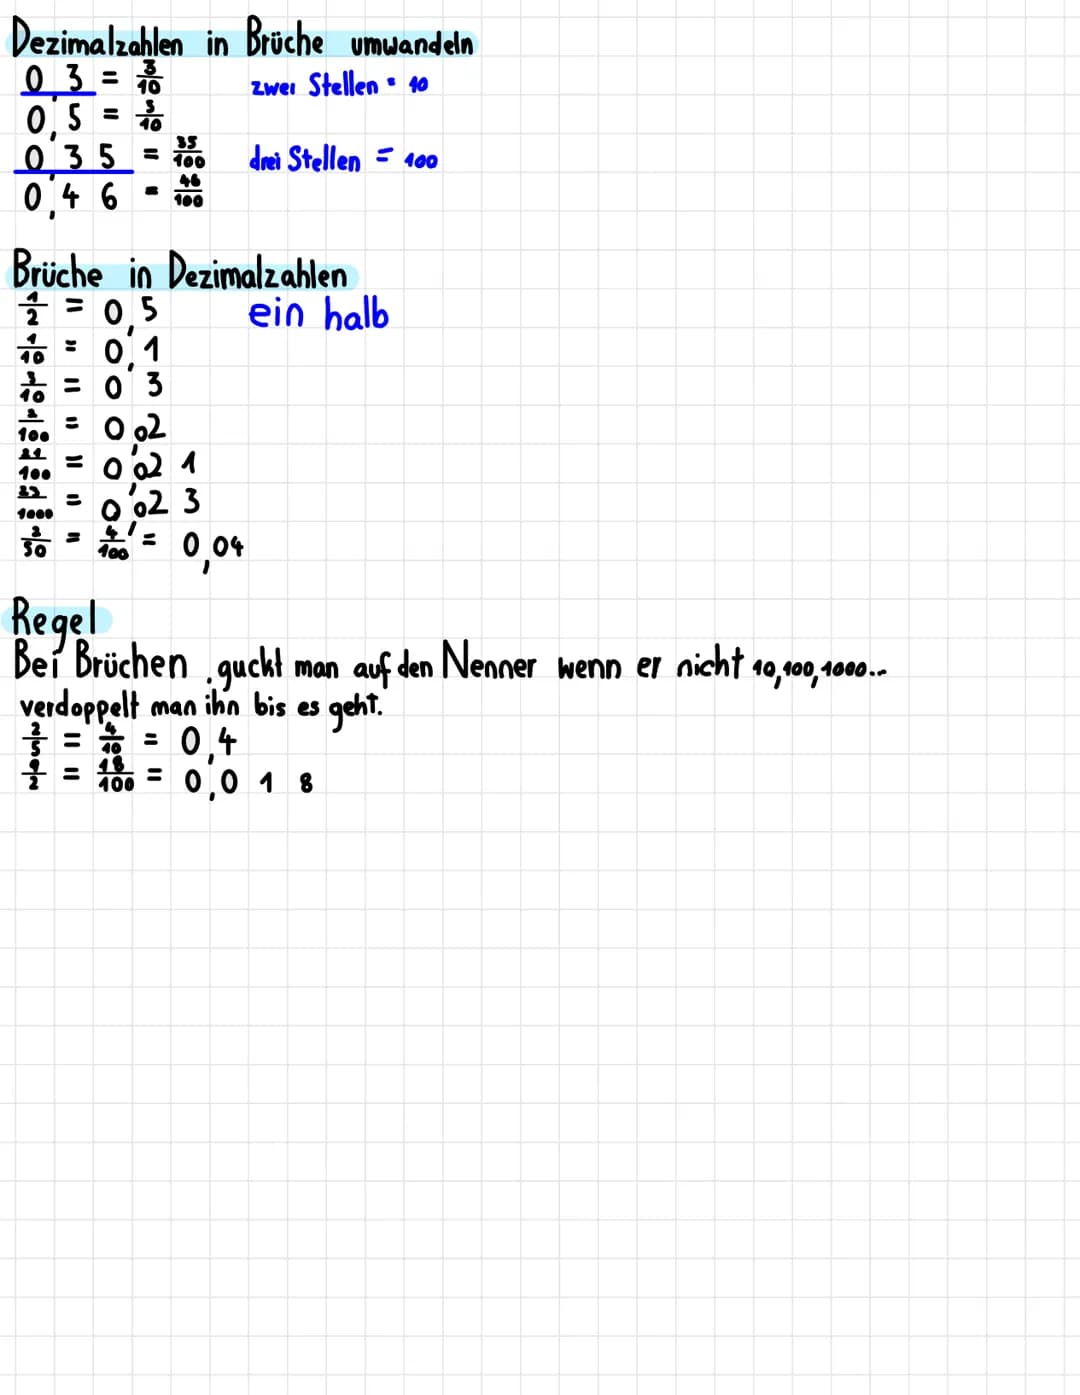 Dezimalzahlen in Brüche umwandeln
0,3 = 3/10 zwei Stellen = 10
0,5 = 5/10
0,35 = 35/100 drei Stellen = 100
0,46 = 46/100
Brüche in Dezimalzahlen
1/2 = 0,5 ein halb
1/10 = 0,1
3/10 = 0,3
2/100 = 0,02
21/100 = 0,021
23/1000 = 0,023
2/50 = 4/100 = 0,04
Regel
Bei Brüchen, guckt man auf den Nenner wenn er nicht 10,100,1000...
verdoppelt man ihn bis es geht.
2/5 = 4/10 = 0,4
9/2 = 18/100 = 0,018